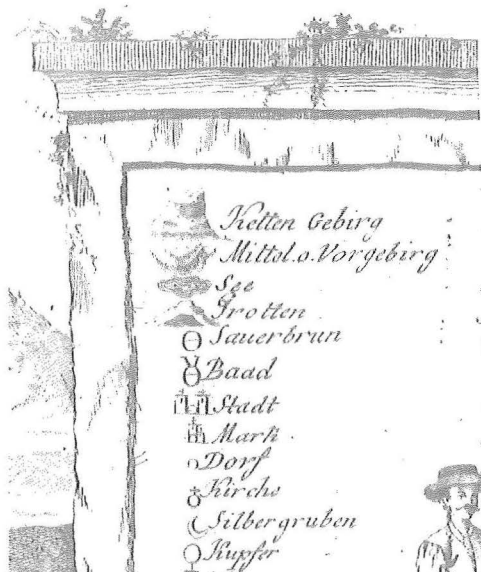 Ketten Gebirg
Mittel.o.Vorgebirg
See
Grotten
Sauerbrun
Baad
Stadt
Mark
Dorf
Kirche
Silbergruben
Kupfer